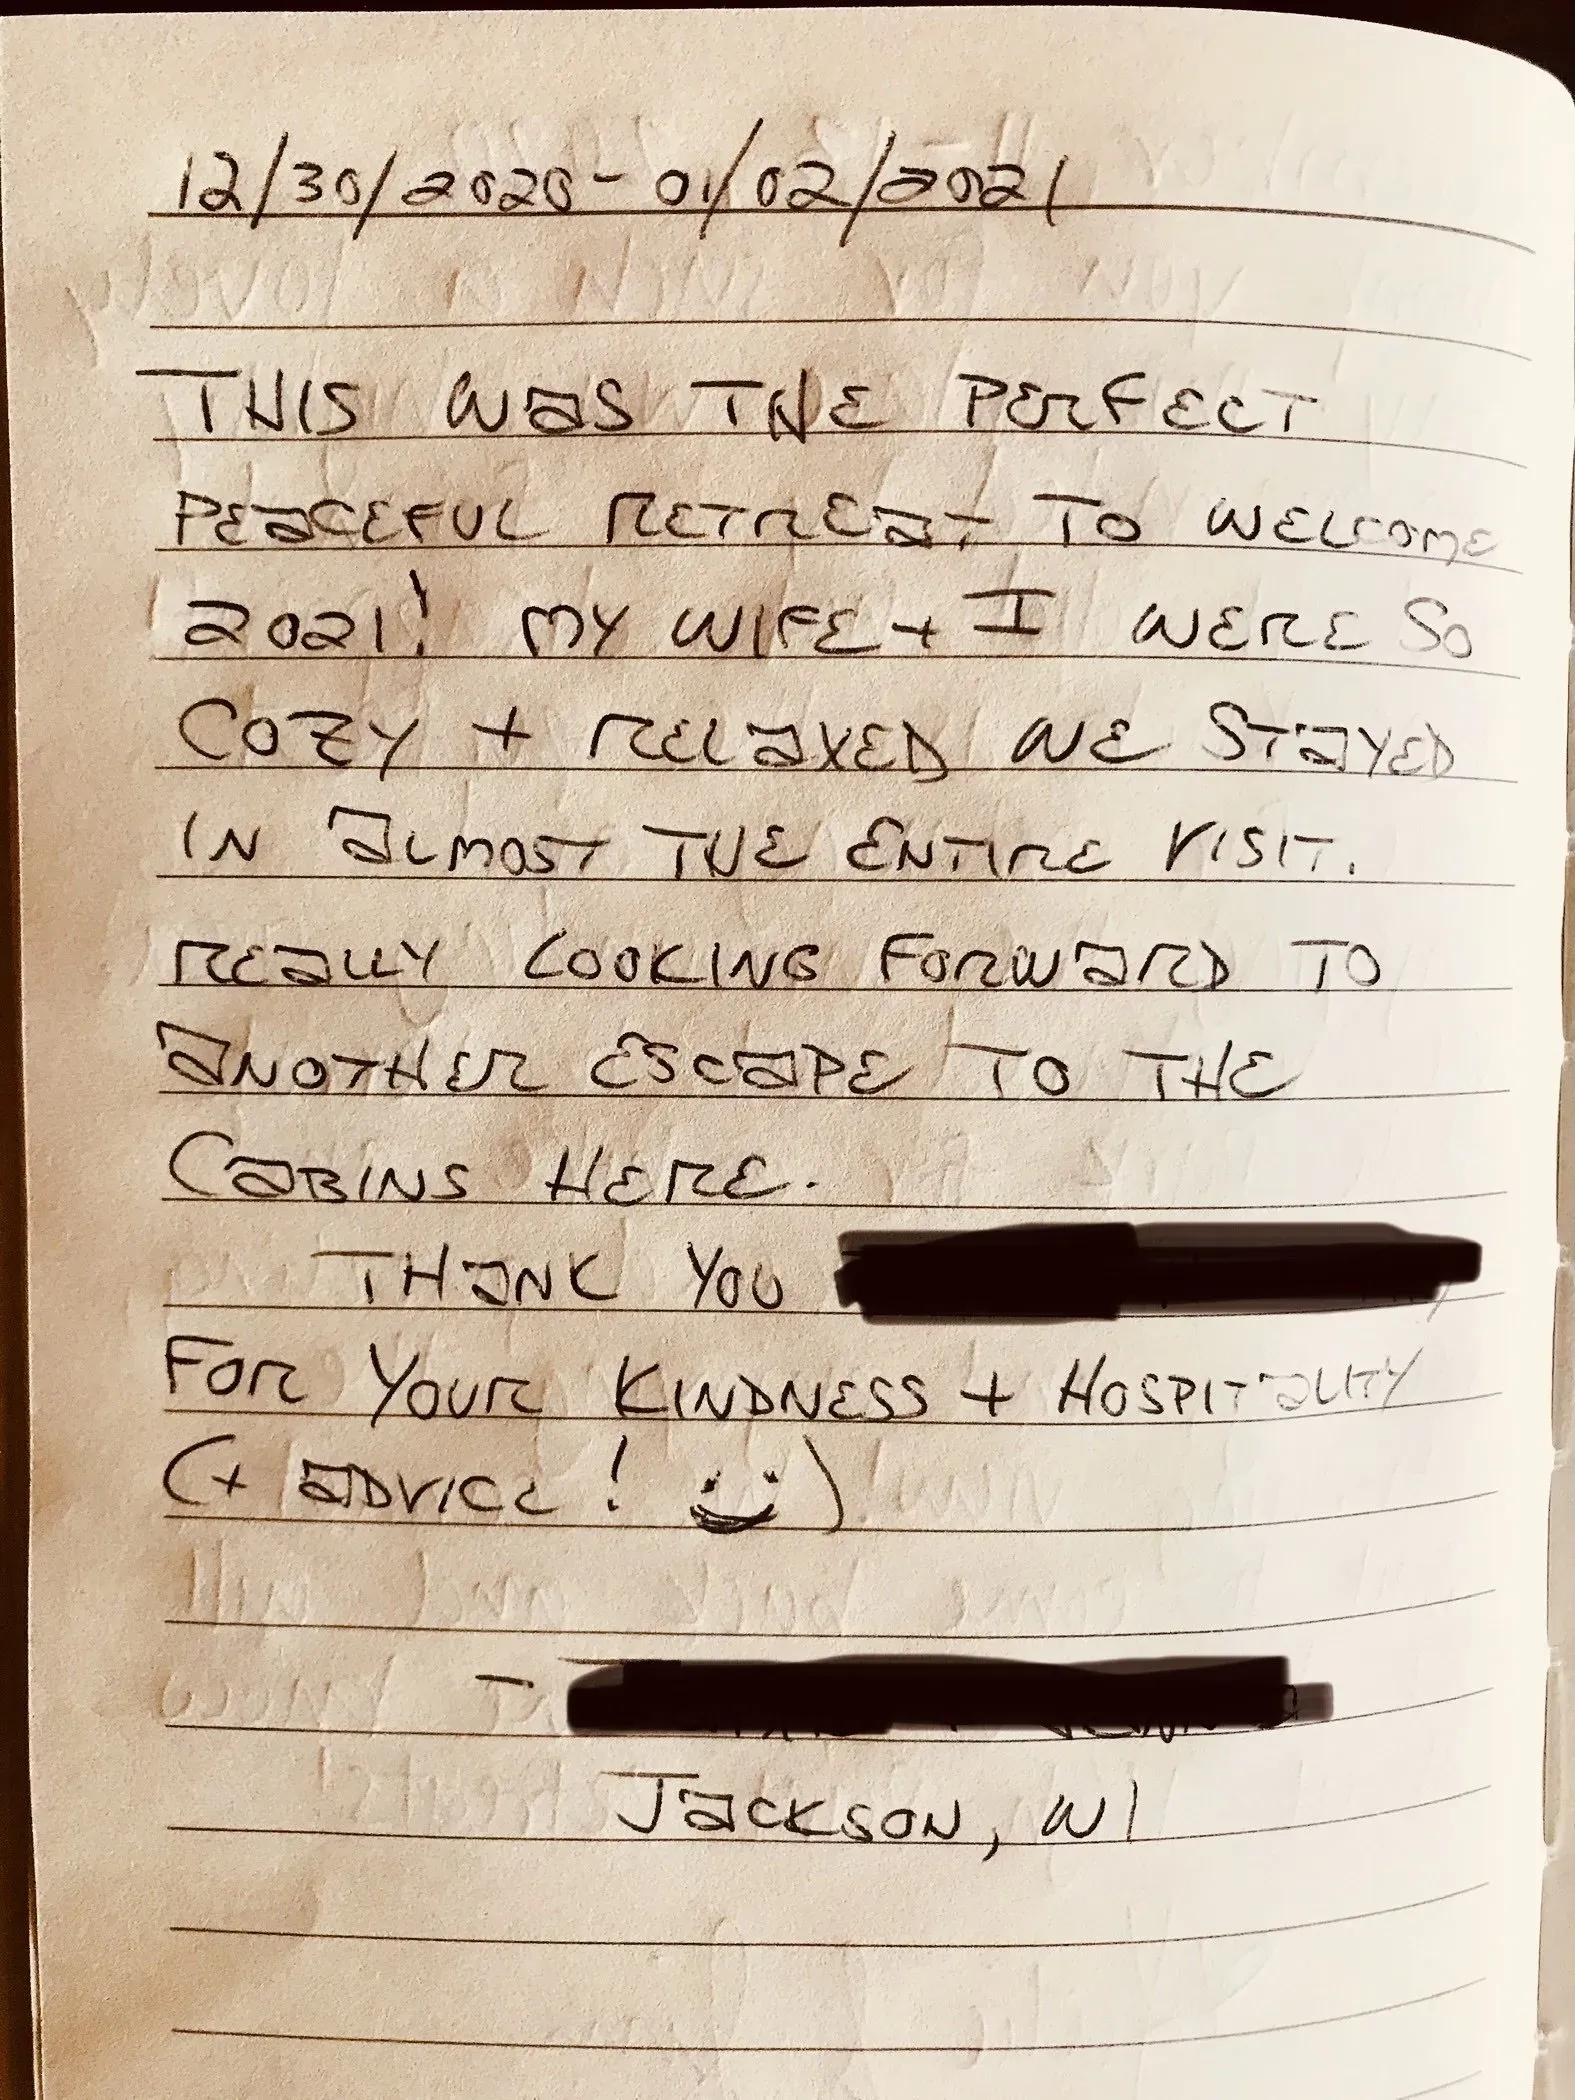 12/30/2020 - 01/02/2021
THIS WAS THE PERFECT
PEACEFUL RETREAT TO WELCOME
2021! MY WIFE + I WERE SO
COZY + RELAXED WE STAYED
IN ALMOST THE ENTIRE VISIT.
REALLY LOOKING FORWARD TO
ANOTHER ESCAPE TO THE
CABINS HERE.
THANK YOU
FOR YOUR KINDNESS + HOSPITALITY
(+ ADVICE! :))
-
JACKSON, WI